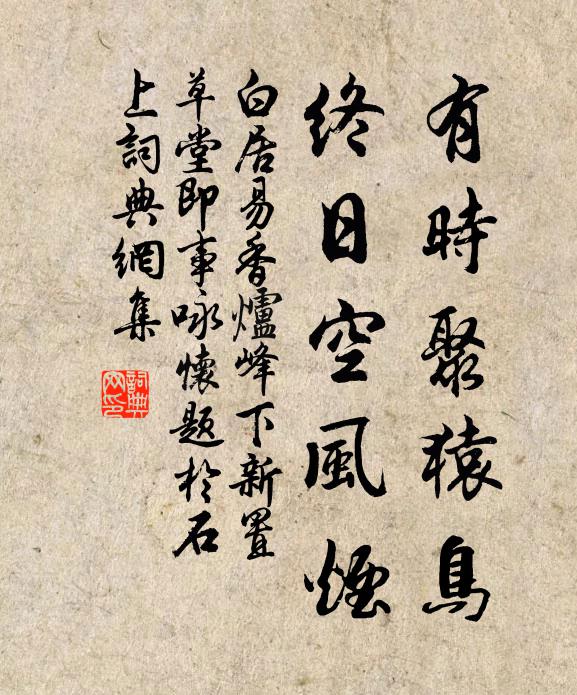 有時聚猿鳥
終日空風煙
白居易香爐峰下新置
草堂即事咏懷題於石
上詞典網集
詞典
网印